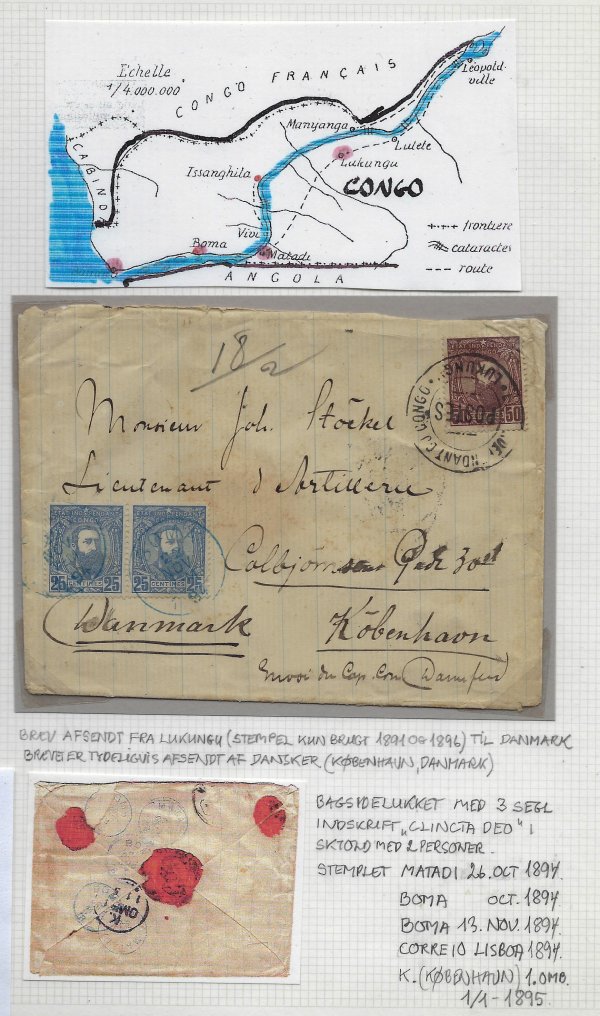 Echelle
1/4.000.000°
CONGO FRANÇAIS
CABIND
Léopold-
ville
Manyanga
Lutete
Lukungu
Issanghila
CONGO
Vivi
Boma
Matadi
ANGOLA
frontière
cataractes
route
18/2
ETAT INDEPENDANT DU CONGO
LUKUNGU
50
Monsieur Joh. Stöckel
Lieutenant d'Artillerie
ETAT INDEPENDANT DU CONGO
25 CENTIMES 25
ETAT INDEPENDANT DU CONGO
25 CENTIMES 25
Colbjörnsens Gade 30
Danmark København
Envoi du Cap. Com
BREV AFSENDT FRA LUKUNGU (STEMPEL KUN BRUGT 1891 OG 1896) TIL DANMARK
BREVET ER TYDELIGVIS AFSENDT AF DANSKER (KØBENHAVN, DANMARK)
BAGSIDELUKKET MED 3 SEGL
INDSKRIFT „CLINCTA DEO" I
SKJOLD MED 2 PERSONER.
STEMPLET MATADI 26. OCT 1894.
BOMA OCT. 1894
BOMA 13. NOV. 1894.
CORREIO LISBOA 1894.
K. (KØBENHAVN) 1. OMB.
1/1-1895.
K.
OMB. 1